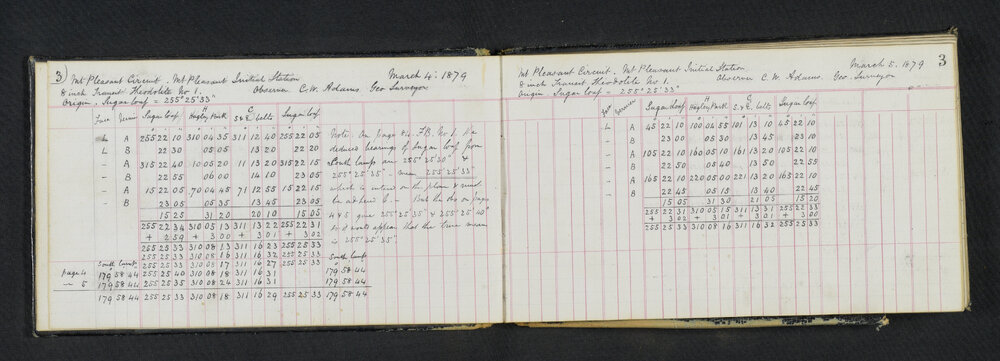 3) Mt Pleasant Circuit. Mt Pleasant Initial Station March 4: 1879
8 inch Transit Theodolite No 1. Observer C.W. Adams Geo. Surveyor
Origin. Sugar loaf = 255° 25' 33"
Face Vernier Sugar loaf Hagley Park S & E. belts Sugar loaf
L A 255 22 10 310 04 35 311 12 40 255 22 05
L B 22 30 05 05 13 20 22 20
- A 315 22 40 10 05 20 11 13 20 315 22 15
- B 22 55 06 00 14 10 23 05
- A 15 22 05 70 04 45 71 12 55 15 22 15
- B 23 05 05 35 13 45 23 05
15 25 31 20 20 10 15 05
255 22 34 310 05 13 311 13 22 255 22 31
+ 2 59 + 3 00 + 3 01 + 3 02
255 25 33 310 08 13 311 16 23 255 25 33
255 25 33 310 08 16 311 16 32 255 25 33
South Lamp 255 25 33 310 08 17 311 16 27 255 25 33 South Lamp
page 4 179 58 44 255 25 40 310 08 18 311 16 31 179 58 44
" 5 179 58 44 255 25 35 310 08 24 311 16 31 179 58 44
179 58 44 255 25 33 310 08 18 311 16 29 255 25 33 179 58 44
Note. On page 84 F.B. No. 1. the
deduced bearings of Sugar loaf from
South lamp are 255° 25' 30" &
255° 25' 35" - mean 255° 25' 33"
which is entered on the plan & must
be adhered to. - But the obs on pages
4 & 5 give 255° 25' 35" & 255° 25' 40"
so it would appear that the true mean
is 255° 25' 35".
Mt Pleasant Circuit. Mt Pleasant Initial Station. March 5. 1879 3
8 inch Transit Theodolite No 1. Observer C.W. Adams. Geo. Surveyor
Origin. Sugar loaf = 255° 25' 33"
Vernier Sugar loaf Hagley Park S. & E. belts Sugar loaf
L A 45 22 10 100 04 55 101 13 10 45 22 10
- B 23 00 05 30 13 45 23 10
- A 105 22 10 160 05 10 161 13 20 105 22 10
- B 22 50 05 40 13 50 22 55
- A 165 22 10 220 05 00 221 13 20 165 22 10
- B 22 45 05 15 13 40 22 45
15 05 31 30 21 05 15 20
255 22 31 310 05 15 311 13 31 255 22 33
+ 3 02 + 3 01 + 3 01 + 3 00
255 25 33 310 08 16 311 16 32 255 25 33